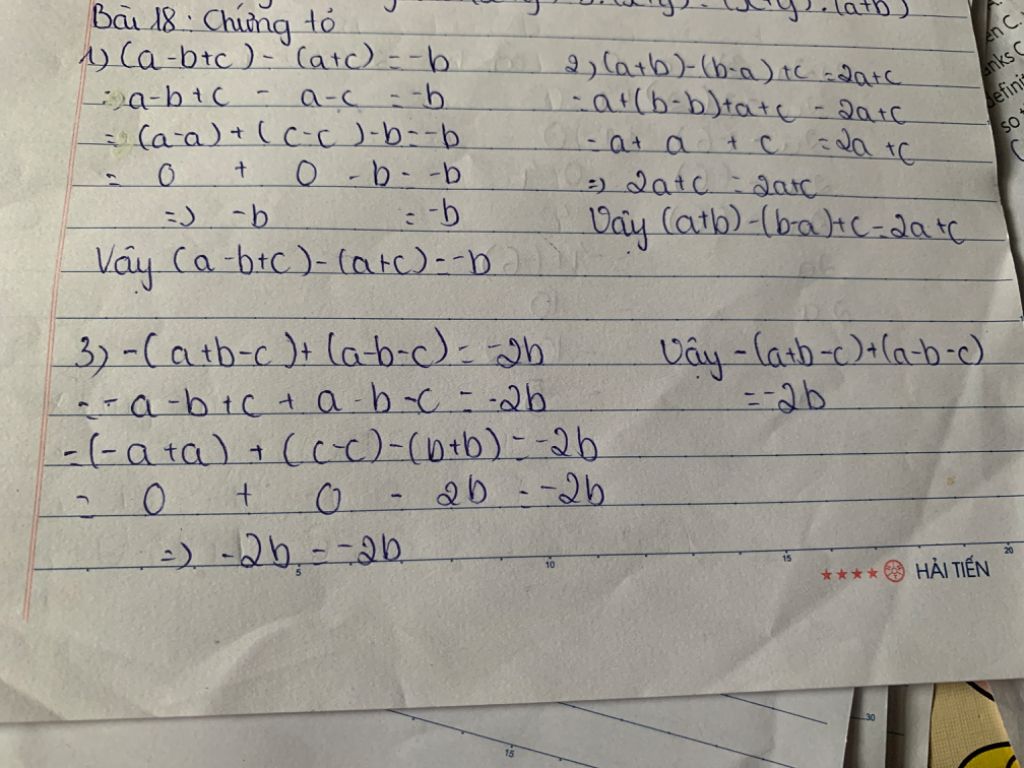 Bài 18: Chứng tỏ
1) (a-b+c) - (a+c) = -b
= a-b+c - a-c = -b
= (a-a) + (c-c) -b = -b
= 0 + 0 -b = -b
=> -b = -b
Vậy (a-b+c) - (a+c) = -b
2) (a+b) - (b-a) + c = 2a+c
= a+(b-b)+a+c = 2a+c
= a + a + c = 2a+c
=> 2a+c = 2a+c
Vậy (a+b) - (b-a) + c = 2a+c
3) -(a+b-c) + (a-b-c) = -2b
= -a-b+c + a-b-c = -2b
= (-a+a) + (c-c) - (b+b) = -2b
= 0 + 0 - 2b = -2b
=> -2b = -2b
Vậy -(a+b-c)+(a-b-c)
= -2b
5 10 15 20
HẢI TIẾN
15
30